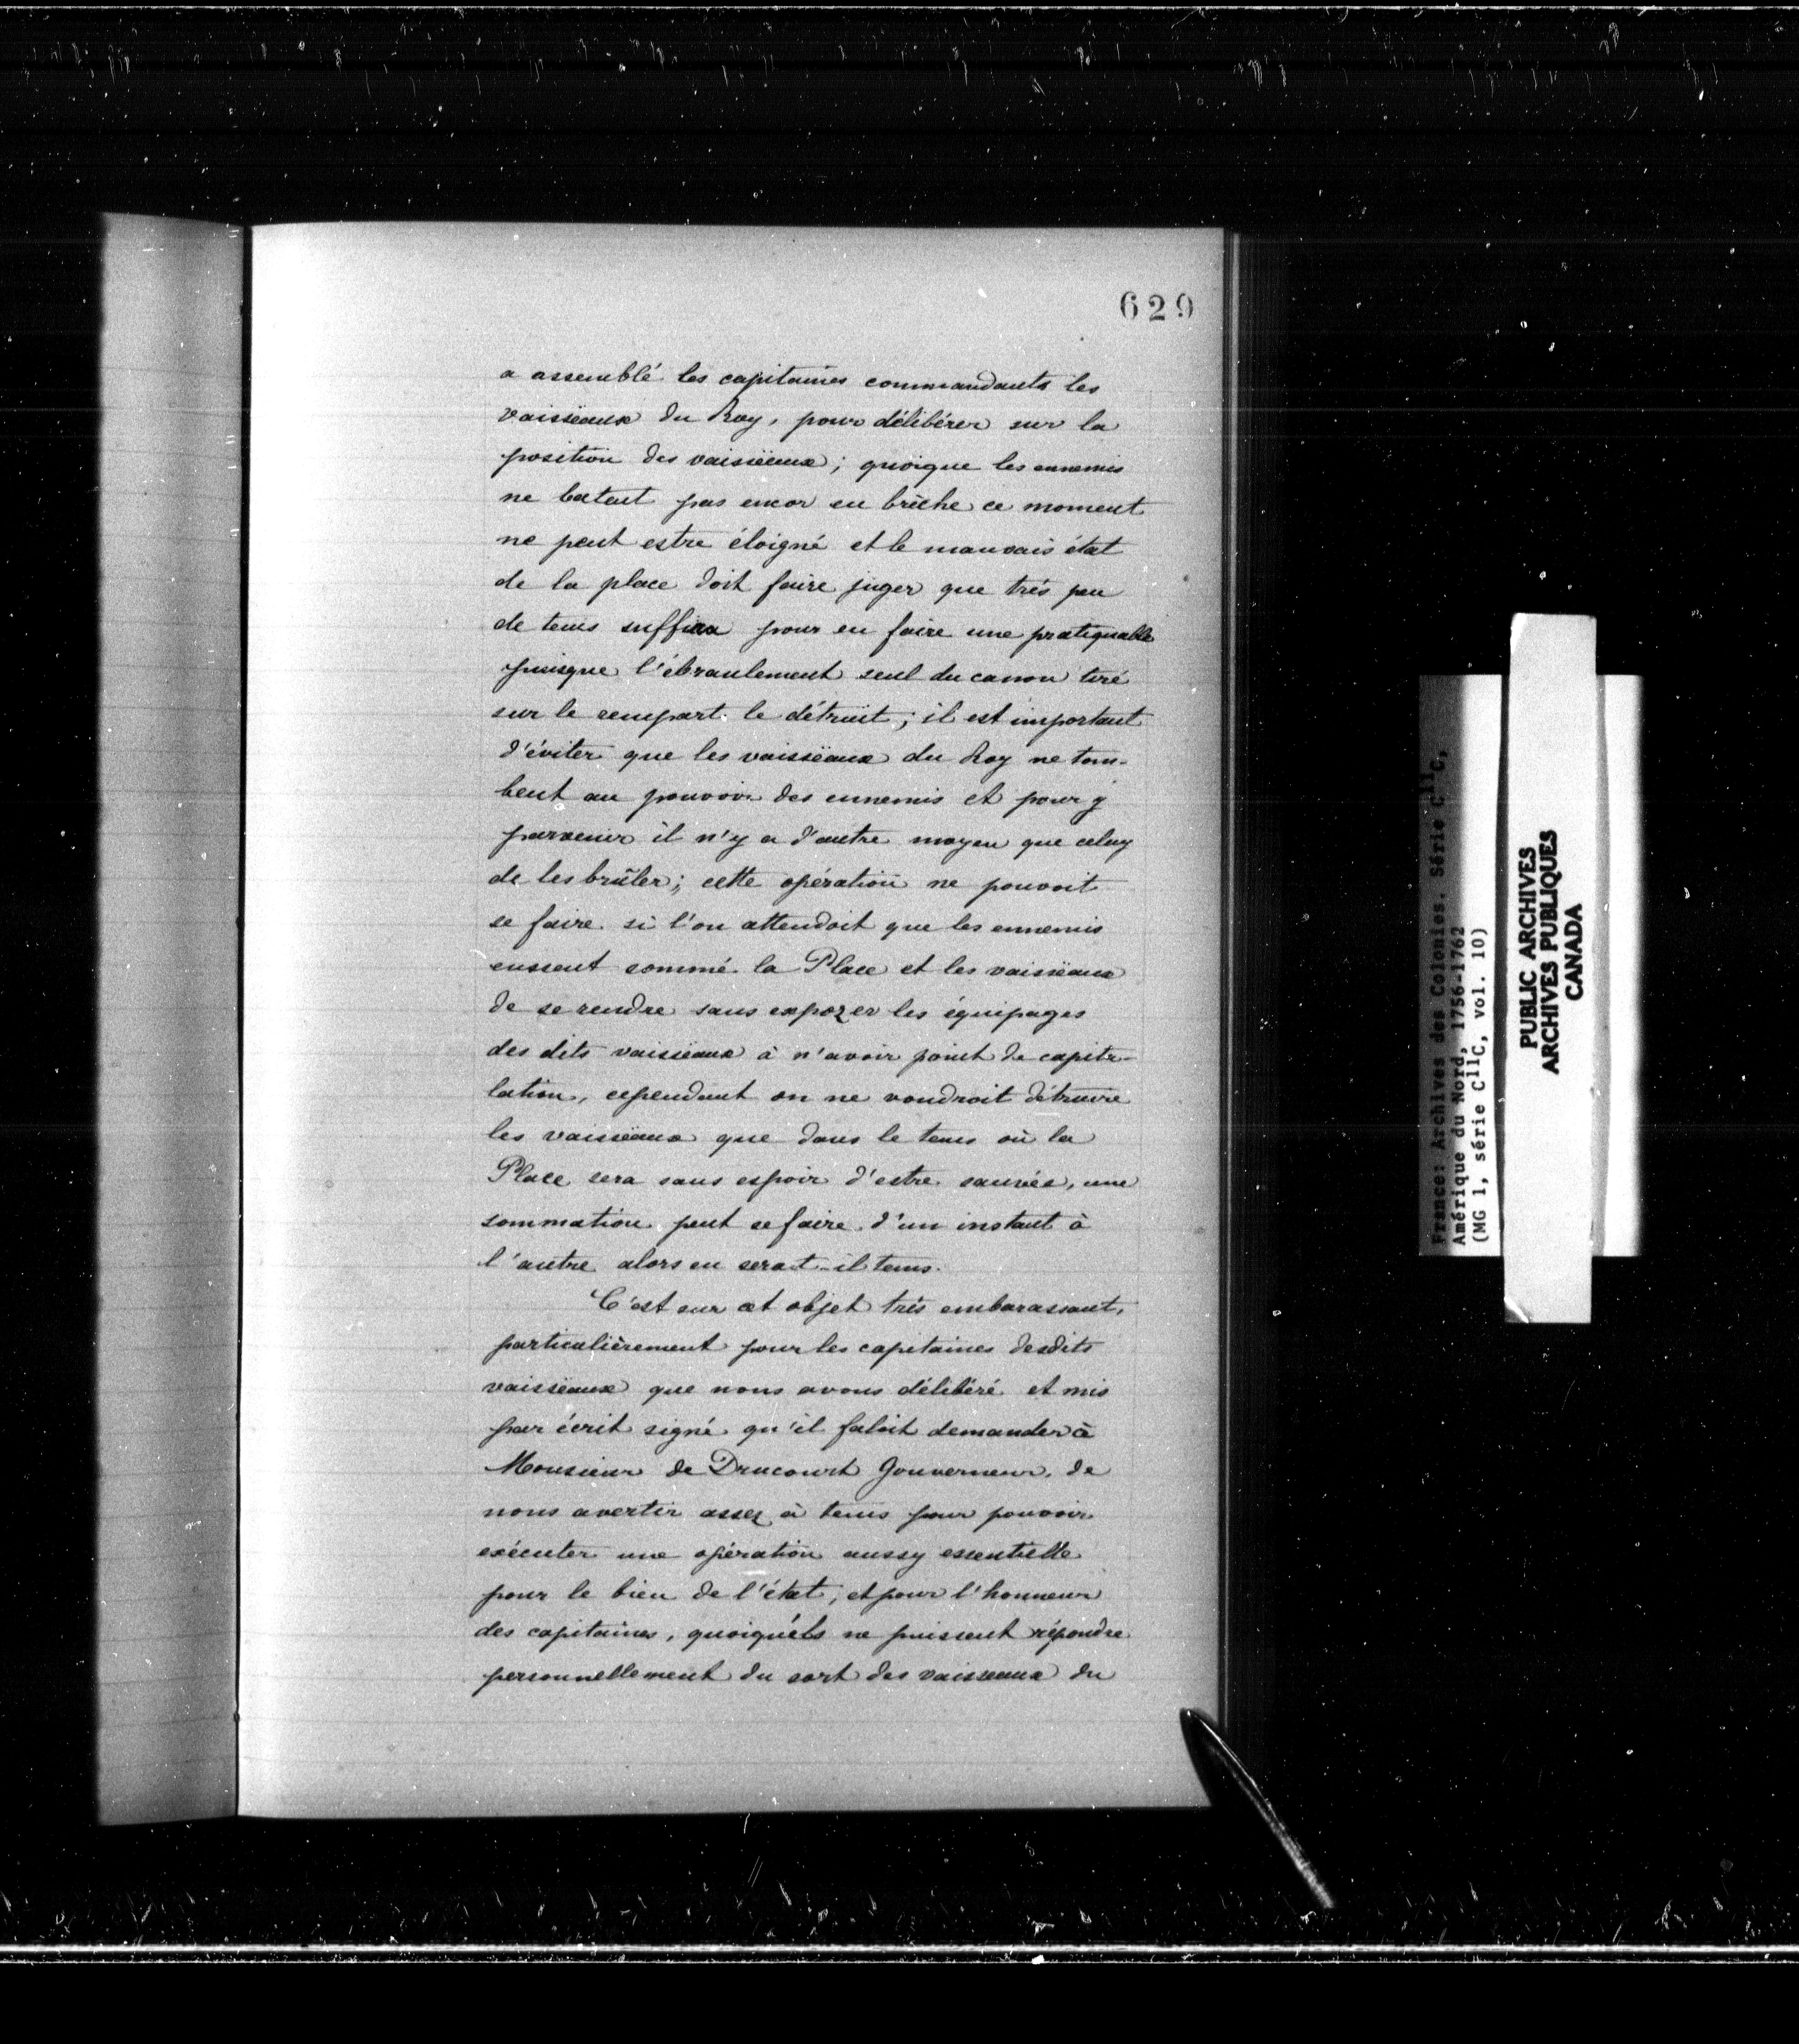 629
a assemblé les capitaines commandants les
vaissëaux du Roy, pour délibérer sur la
position des vaissëaux; quoique les ennemis
ne batent pas encor en brèche ce moment
ne peut estre éloigné et le mauvais état
de la place doit faire juger que très peu
de tems suffira pour en faire une pratiquable
puisque l'ébranlement seul du canon tiré
sur le rempart le détruit; il est important
d'éviter que les vaissëaux du Roy ne tom-
bent au pouvoir des ennemis et pour y
parvenir il n'y a d'autre moyen que celuy
de les brûler; cette opération ne pouvoit
se faire si l'on attendoit que les ennemis
eussent sommé la Place et les vaissëaux
de se rendre sans expozer les équipages
des dits vaissëaux à n'avoir point de capitu-
lation, cependant on ne voudroit détruire
les vaissëaux que dans le tems où la
Place sera sans espoir d'estre sauvée, une
sommation peut se faire d'un instant à
l'autre alors en sera-t-il tems.
C'est sur cet objet très embarassant,
particulièrement pour les capitaines desdits
vaissëaux que nous avons délibéré et mis
par écrit signé qu'il faloit demander à
Monsieur de Drucourt Gouverneur, de
nous avertir assez à tems pour pouvoir
exécuter une opération aussy essentielle
pour le bien de l'état, et pour l'honneur
des capitaines, quoiqu'ils ne puissent répondre
personnellement du sort des vaisseaux du
France: Archives des Colonies. Série C11C,
Amérique du Nord, 1756-1762
(MG 1, série C11C, vol. 10)
PUBLIC ARCHIVES
ARCHIVES PUBLIQUES
CANADA